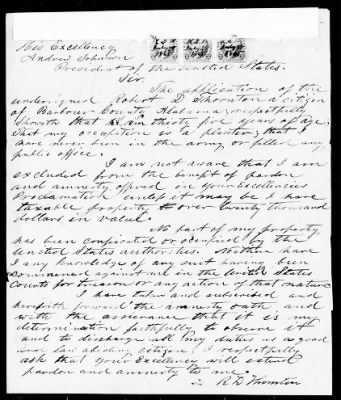 His Excellency
Andrew Johnson
President of the United States.
Sir.
The application of the
undersigned Robert D Thornton a citizen
of Barbour County Alabama respectfully
Showeth that he is thirty five years of age.
That my occupation is a planter, that I
have never been in the army or filled any
public office.
I am not aware that I am
excluded from the benefit of pardon
and amnesty offered in your Excellencies
Proclamation unless it may be I have
taxable property to over twenty thousand
dollars in value
No part of my property
has been confiscated or occupied by the
United States authorities. Neither have
I any knowledge of any suit having been
commenced against me in the United States
Courts for treason or any action of that nature
I have taken and subscribed and
herewith forward the amnesty oath and
with the assurance that it is my
determination faithfully to observe it
and to discharge all my duties as a good
and law abiding citizen, I respectfully
ask that your Excellency will extend
pardon and amnesty to me.
R D Thornton